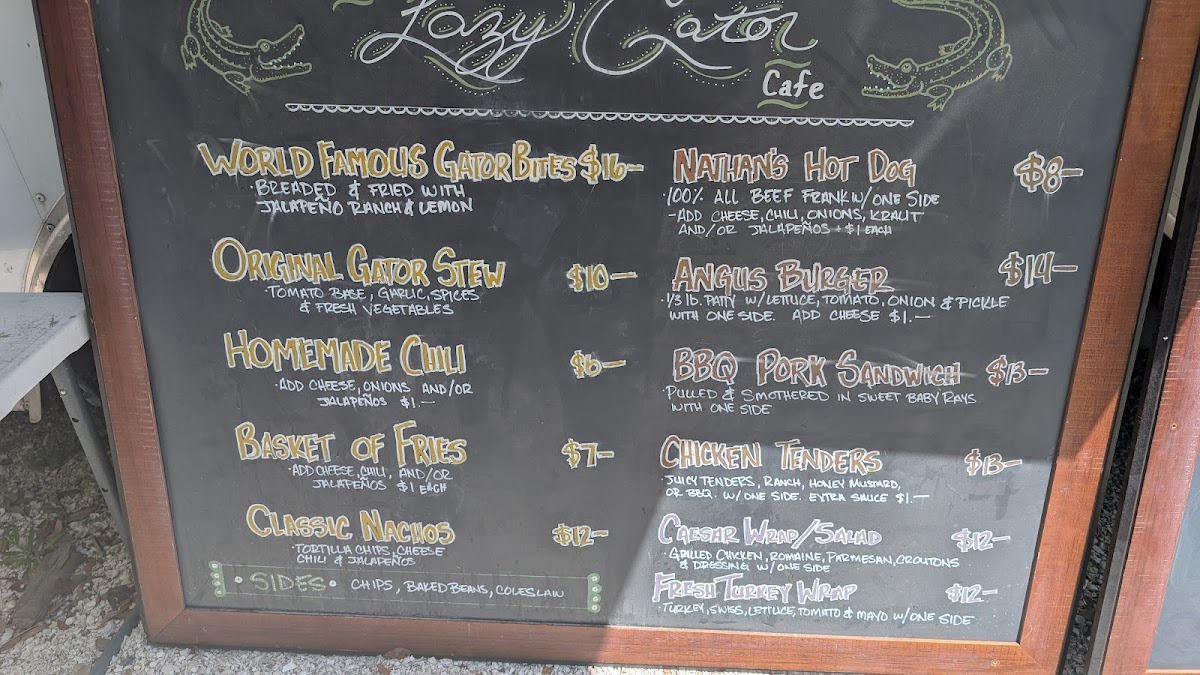 Lazy Gator
Cafe
WORLD FAMOUS GATOR BITES $16-
·BREADED & FRIED WITH
JALAPEÑO RANCH & LEMON
ORIGINAL GATOR STEW $10-
·TOMATO BASE, GARLIC, SPICES
& FRESH VEGETABLES
HOMEMADE CHILI $6-
·ADD CHEESE, ONIONS AND/OR
JALAPEÑOS $1.-
BASKET OF FRIES $7-
·ADD CHEESE, CHILI, AND/OR
JALAPEÑOS $1 EACH
CLASSIC NACHOS $12-
·TORTILLA CHIPS, CHEESE
CHILI & JALAPEÑOS
·SIDES· CHIPS, BAKED BEANS, COLESLAW
NATHAN'S HOT DOG $8-
·100% ALL BEEF FRANK W/ ONE SIDE
-ADD CHEESE, CHILI, ONIONS, KRAUT
AND/OR JALAPEÑOS + $1 EACH
ANGUS BURGER $14-
·1/3 lb. PATTY W/ LETTUCE, TOMATO, ONION & PICKLE
WITH ONE SIDE. ADD CHEESE $1.-
BBQ PORK SANDWICH $13-
·PULLED & SMOTHERED IN SWEET BABY RAYS
WITH ONE SIDE
CHICKEN TENDERS $13-
·JUICY TENDERS, RANCH, HONEY MUSTARD,
OR BBQ. W/ ONE SIDE. EXTRA SAUCE $1.-
CAESAR WRAP/SALAD $12-
·GRILLED CHICKEN, ROMAINE, PARMESAN, CROUTONS
& DRESSING W/ ONE SIDE
FRESH TURKEY WRAP $12-
·TURKEY, SWISS, LETTUCE, TOMATO & MAYO W/ ONE SIDE